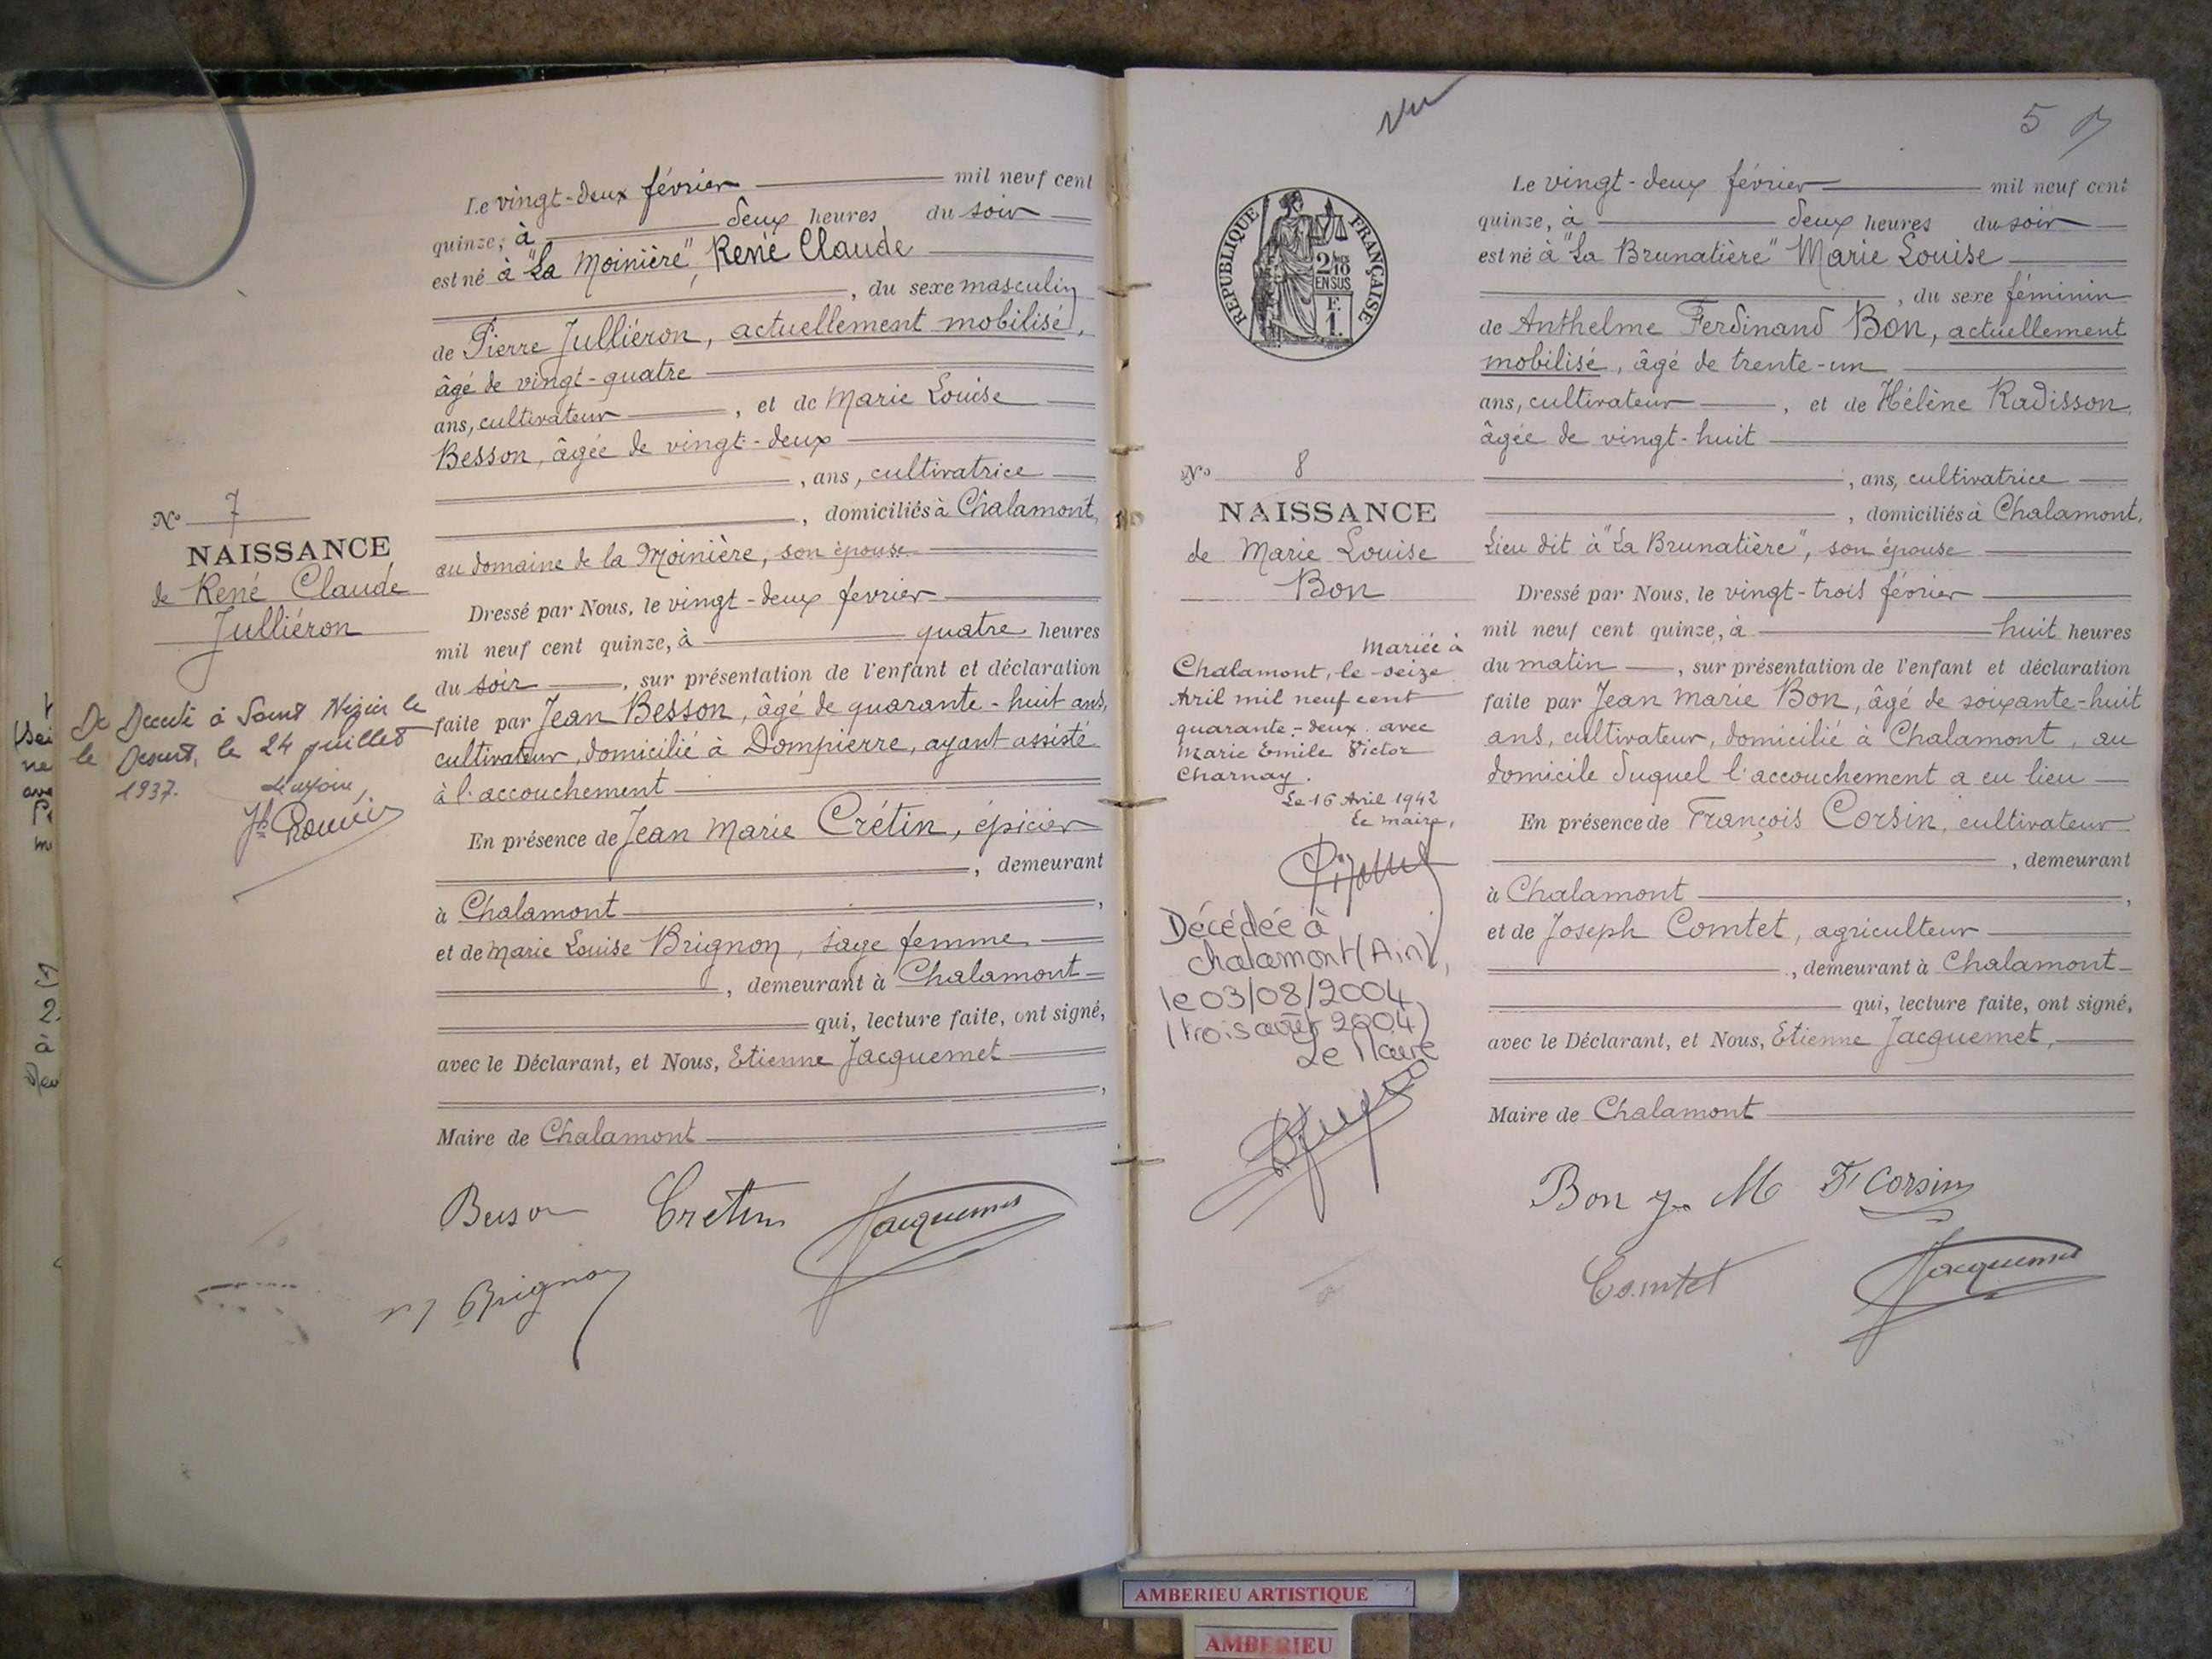 Le vingt-deux février mil neuf cent
quinze, à deux heures du soir
est né à "La Moinière", René Claude
, du sexe masculin
de Pierre Julliéron, actuellement mobilisé,
âgé de vingt-quatre
ans, cultivateur, et de Marie Louise
Besson, âgée de vingt-deux
, ans, cultivatrice
, domiciliés à Chalamont,
au domaine de la Moinière, son épouse
Dressé par Nous, le vingt-deux février
mil neuf cent quinze, à quatre heures
du soir, sur présentation de l'enfant et déclaration
faite par Jean Besson, âgé de quarante-huit ans,
cultivateur, domicilié à Dompierre, ayant assisté
à l'accouchement
En présence de Jean Marie Crétin, épicier
, demeurant
à Chalamont,
et de Marie Louise Brignon, sage femme
, demeurant à Chalamont
qui, lecture faite, ont signé,
avec le Déclarant, et Nous, Etienne Jacquemet
,
Maire de Chalamont
Besson Cretin Jacquemet
Brignon
No 7
NAISSANCE
de René Claude
Julliéron
Décédé à Saint Nizier le
le Désert, le 24 juillet
1937.
Le Maire,
vu
5
REPUBLIQUE FRANÇAISE
2/10
EN SUS
F.
1.
No 8
NAISSANCE
de Marie Louise
Bon
Mariée à
Chalamont, le seize
Avril mil neuf cent
quarante-deux avec
Marie Emile Victor
Charnay.
Le 16 Avril 1942
Le Maire,
Décédée à
Chalamont (Ain),
le 03/08/2004
(trois août 2004)
Le Maire
Le vingt-deux février mil neuf cent
quinze, à deux heures du soir
est né à "La Brunatière" Marie Louise
, du sexe féminin
de Anthelme Ferdinand Bon, actuellement
mobilisé, âgé de trente-un
ans, cultivateur, et de Hélène Radisson,
âgée de vingt-huit
, ans, cultivatrice
, domiciliés à Chalamont,
Lieu dit à "La Brunatière", son épouse
Dressé par Nous, le vingt-trois février
mil neuf cent quinze, à huit heures
du matin, sur présentation de l'enfant et déclaration
faite par Jean Marie Bon, âgé de soixante-huit
ans, cultivateur, domicilié à Chalamont, au
domicile duquel l'accouchement a eu lieu
En présence de François Corsin, cultivateur
, demeurant
à Chalamont,
et de Joseph Comtet, agriculteur
, demeurant à Chalamont
qui, lecture faite, ont signé,
avec le Déclarant, et Nous, Etienne Jacquemet,
Maire de Chalamont
Bon J. M F Corsin
Comtet Jacquemet
AMBERIEU ARTISTIQUE
AMBERIEU